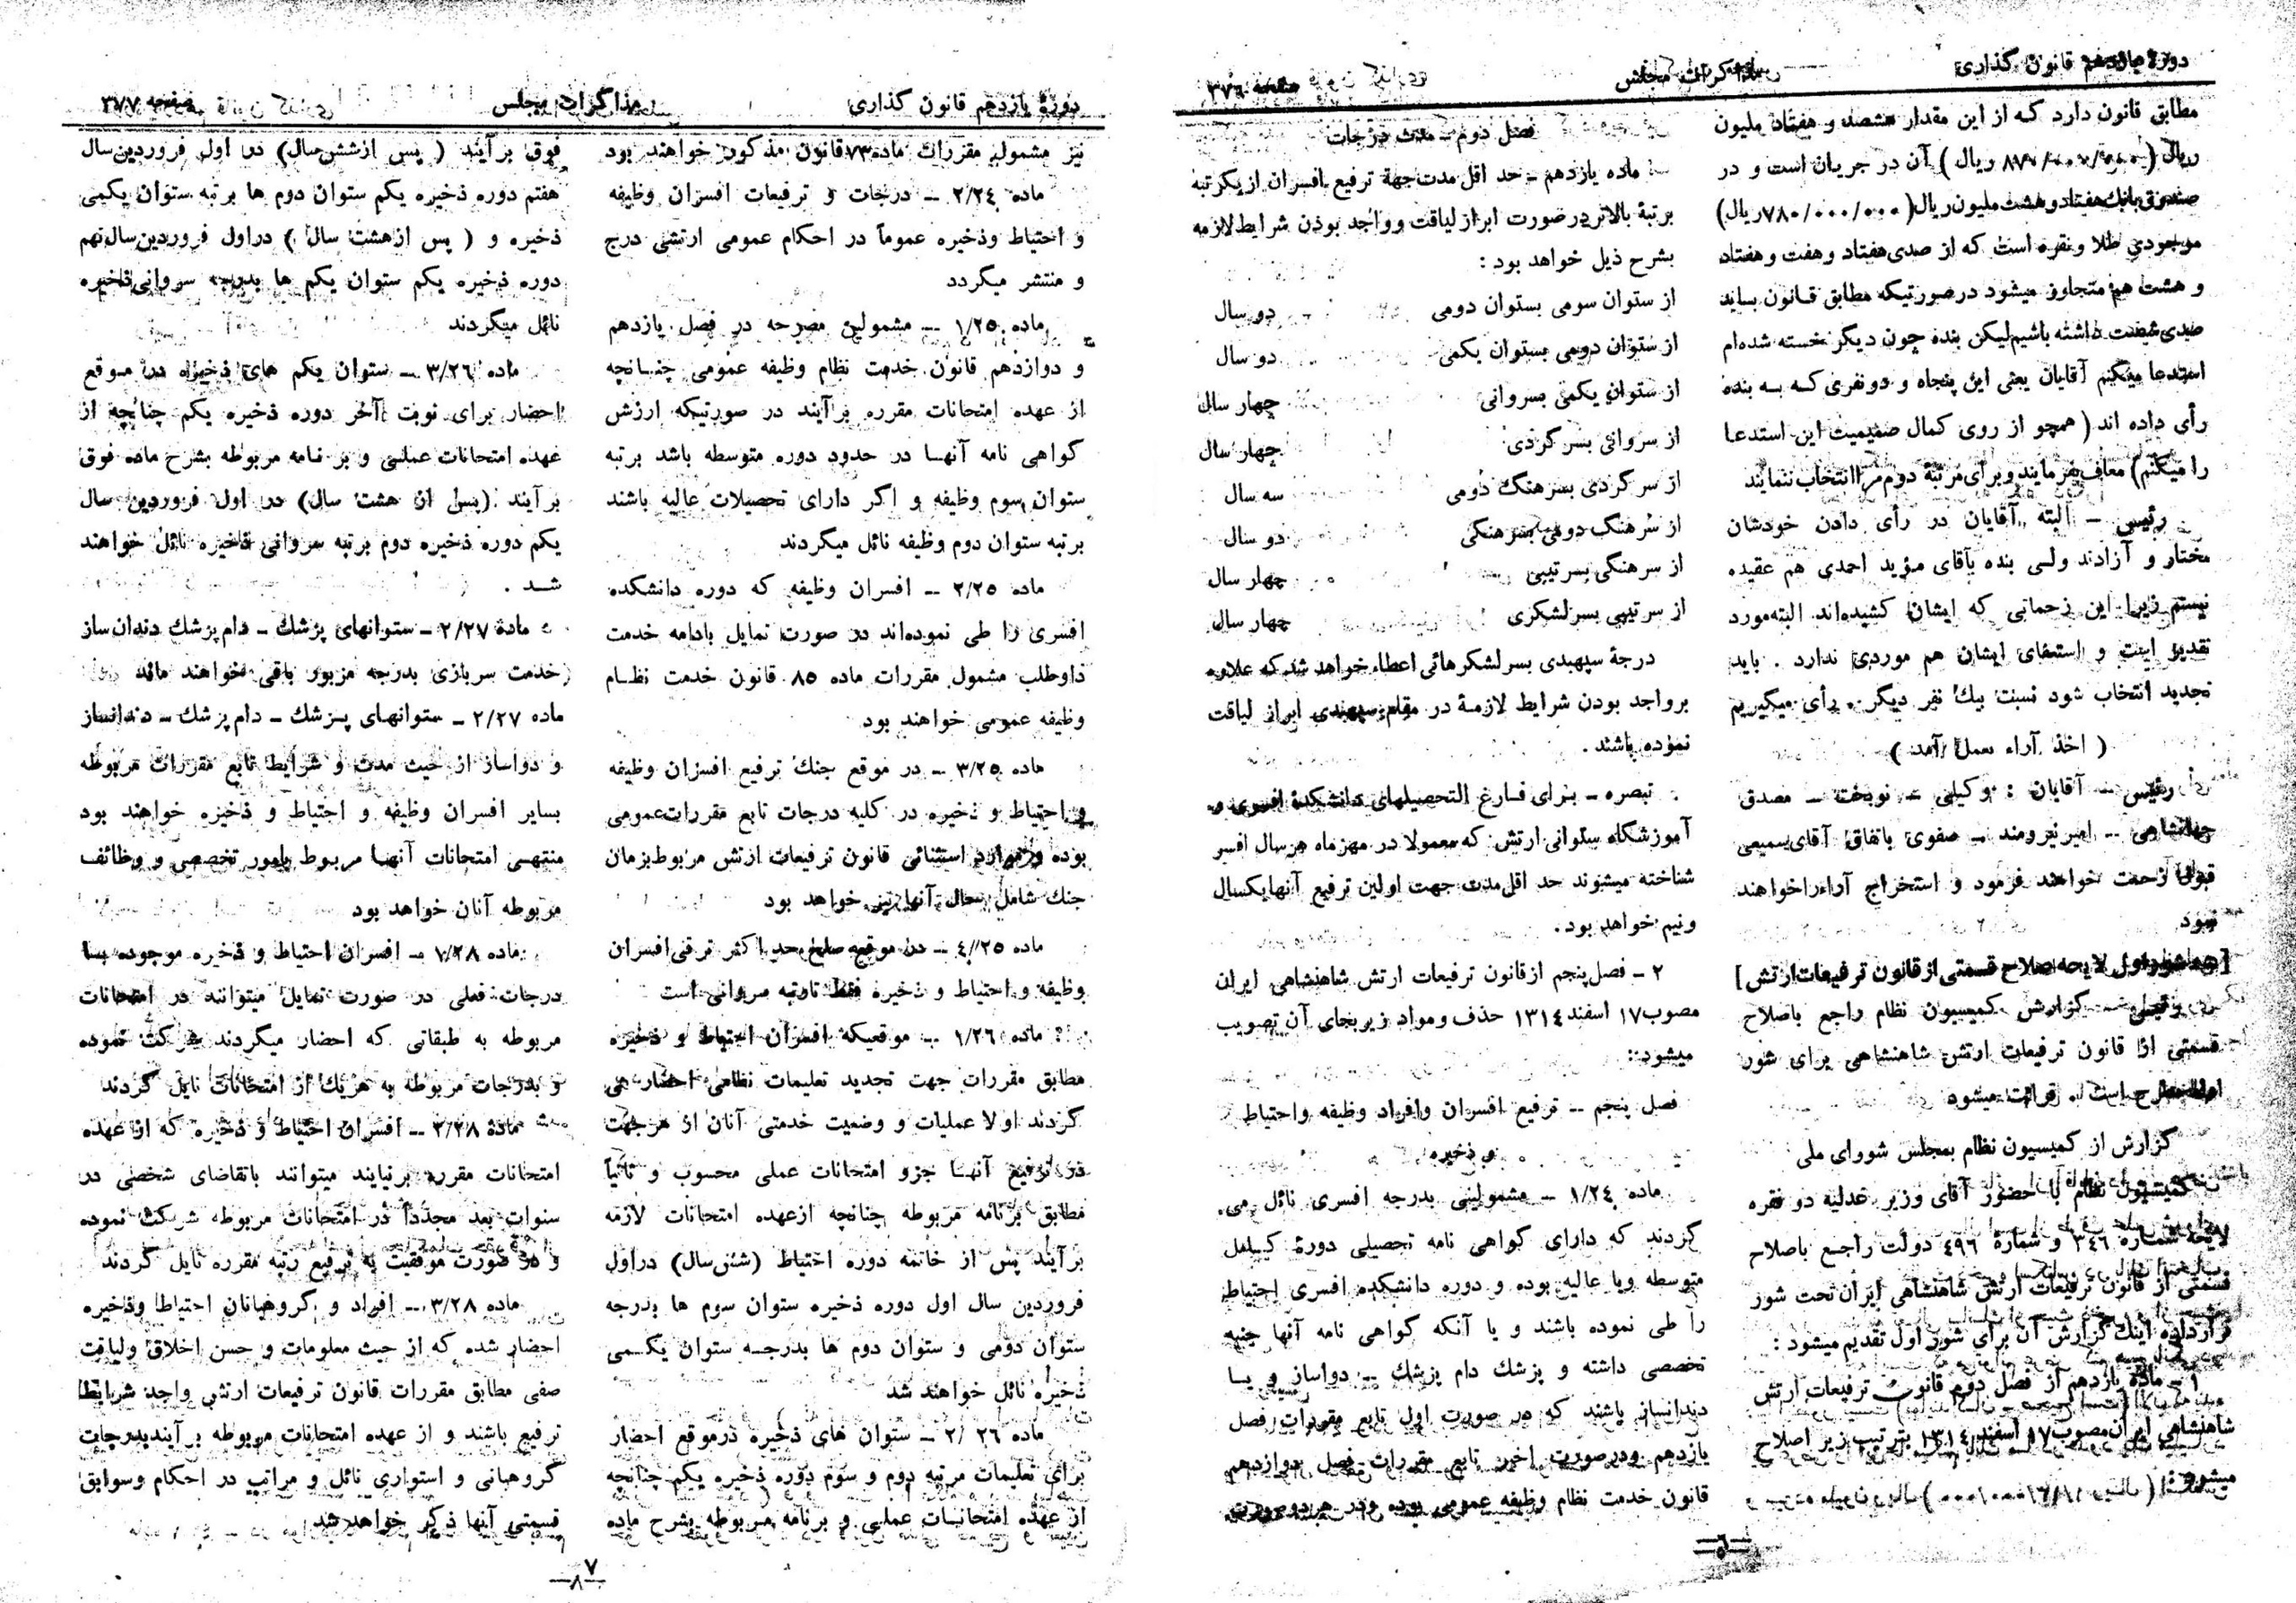 دورهٔ یازدهم قانون گذاری
مذاکرات مجلس
صفحه ۳۷٦
مطابق قانون دارد که از این مقدار هشصد و هفتاد ملیون
ریال ( ریال ) آن در جریان است و در
صندوق بانک هفتاد و هشت ملیون ریال (۷۸۰/۰۰۰/۰۰۰ ریال)
موجودی طلا و نقره است که از صدی هفتاد و هفت و هفتاد
و هشت هم متجاوز میشود در صورتیکه مطابق قانون باید
صدی شصت داشته باشیم لیکن بنده چون دیگر خسته شده‌ام
استدعا میکنم آقایان یعنی این پنجاه و دو نفری که به بنده
رأی داده اند ( همچو از روی کمال صمیمیت این استدعا
را میکنم) معاف فرمایند و برای مرتبهٔ دوم مرا انتخاب ننمایند
رئیس – البته آقایان در رأی دادن خودشان
مختار و آزادند ولی بنده با آقای مؤید احمدی هم عقیده
نیستم زیرا این زحماتی که ایشان کشیده‌اند البته مورد
تقدیر است و استعفای ایشان هم موردی ندارد . باید
تجدید انتخاب شود نسبت بیك نفر دیگر . رأی میگیریم
( اخذ آراء بعمل آمد )
رئیس – آقایان : وکیلی – نوبخت – مصدق
جهانشاهی – امیر نیرومند – صفوی باتفاق آقای سمیعی
قبول زحمت خواهند فرمود و استخراج آراء را خواهند
نمود
شور اول لایحه اصلاح قسمتی از قانون ترفیعات ارتش]
رئیس – گزارش کمیسیون نظام راجع باصلاح
قسمتی از قانون ترفیعات ارتش شاهنشاهی برای شور
اول مطرح است . قرائت میشود
گزارش از کمیسیون نظام بمجلس شورای ملی
کمیسیون نظام با حضور آقای وزیر عدلیه دو فقره
لایحه شماره ۳٤٦ و شمارهٔ ٤۹٦ دولت راجع باصلاح
قسمتی از قانون ترفیعات ارتش شاهنشاهی ایران تحت شور
قرار داده اینك گزارش آن برای شور اول تقدیم میشود :
۱ – ماده یازدهم از فصل دوم قانون ترفیعات ارتش
شاهنشاهی ایران مصوب ۱۷ اسفند ۱۳۱٤ بترتیب زیر اصلاح
میشود :
فصل دوم – مدت درجات
ماده یازدهم – حد اقل مدت جهة ترفیع افسران از یکرتبه
برتبهٔ بالاتر در صورت ابراز لیاقت و واجد بودن شرایط لازمه
بشرح ذیل خواهد بود :
از ستوان سومی بستوان دومی دو سال
از ستوان دومی بستوان یکمی دو سال
از ستوان یکمی بسروانی چهار سال
از سروانی بسرگردی چهار سال
از سرگردی بسرهنگ دومی سه سال
از سرهنگ دومی بسرهنگی دو سال
از سرهنگی بسرتیپی چهار سال
از سرتیپی بسرلشکری چهار سال
درجهٔ سپهبدی بسرلشکرهائی اعطاء خواهد شد که علاوه
بر واجد بودن شرایط لازمهٔ در مقام سپهبدی ابراز لیاقت
نموده باشند .
تبصره – برای فارغ التحصیلهای دانشکدهٔ افسری و
آموزشگاه ستوانی ارتش که معمولا در مهرماه هر سال افسر
شناخته میشوند حد اقل مدت جهت اولین ترفیع آنها یکسال
ونیم خواهد بود .
۲ – فصل پنجم از قانون ترفیعات ارتش شاهنشاهی ایران
مصوب ۱۷ اسفند ۱۳۱٤ حذف و مواد زیر بجای آن تصویب
میشود :
فصل پنجم – ترفیع افسران وافراد وظیفه واحتیاط
و ذخیره
ماده ۱/۲٤ – مشمولینی بدرجه افسری نائل می
گردند که دارای گواهی نامه تحصیلی دورهٔ کامل
متوسطه ویا عالیه بوده و دوره دانشکده افسری احتیاط
را طی نموده باشند و یا آنکه گواهی نامه آنها جنبه
تخصصی داشته و پزشك دام پزشك – دواساز و یا
دندانساز باشند که در صورت اول تابع مقررات فصل
یازدهم ودرصورت اخیر تابع مقررات فصل دوازدهم
قانون خدمت نظام وظیفه عمومی بوده ودر هر دو صورت
–٦–
دورهٔ یازدهم قانون گذاری
مذاکرات مجلس
صفحه ۳۷۷
نیز مشمول مقررات ماده ۷۳ قانون مذکور خواهند بود
ماده ۲/۲٤ – درجات و ترفیعات افسران وظیفه
و احتیاط وذخیره عموماً در احکام عمومی ارتشی درج
و منتشر میگردد
ماده ۱/۲٥ – مشمولین مصرحه در فصل یازدهم
و دوازدهم قانون خدمت نظام وظیفه عمومی چنانچه
از عهده امتحانات مقرره برآیند در صورتیکه ارزش
گواهی نامه آنها در حدود دوره متوسطه باشد برتبه
ستوان سوم وظیفه و اگر دارای تحصیلات عالیه باشند
برتبه ستوان دوم وظیفه نائل میگردند
ماده ۲/۲٥ – افسران وظیفه که دوره دانشکده
افسری را طی نموده‌اند در صورت تمایل بادامه خدمت
داوطلب مشمول مقررات ماده ۸٥ قانون خدمت نظام
وظیفه عمومی خواهند بود
ماده ۳/۲٥ – در موقع جنك ترفیع افسران وظیفه
و احتیاط و ذخیره در کلیه درجات تابع مقررات عمومی
بوده و موارد استثنائی قانون ترفیعات ارتش مربوط بزمان
جنك شامل حال آنها نیز خواهد بود
ماده ٤/۲٥ – در موقع صلح حد اکثر ترقی افسران
وظیفه و احتیاط و ذخیره فقط تا رتبه سروانی است
ماده ۱/۲٦ – موقعیکه افسران احتیاط و ذخیره
مطابق مقررات جهت تجدید تعلیمات نظامی احضار می
گردند اولا عملیات و وضعیت خدمتی آنان از هر جهت
در ترفیع آنها جزو امتحانات عملی محسوب و ثانیاً
مطابق برنامه مربوطه چنانچه از عهده امتحانات لازمه
برآیند پس از خاتمه دوره احتیاط (شش سال) در اول
فروردین سال اول دوره ذخیره ستوان سوم ها بدرجه
ستوان دومی و ستوان دوم ها بدرجه ستوان یکمی
ذخیره نائل خواهند شد
ماده ۲/۲٦ – ستوان های ذخیره در موقع احضار
برای تعلیمات مرتبه دوم و سوم دوره ذخیره یکم چنانچه
از عهده امتحانات عملی و برنامه مربوطه بشرح ماده
فوق برآیند ( پس از شش سال) در اول فروردین سال
هفتم دوره ذخیره یکم ستوان دوم ها برتبه ستوان یکمی
ذخیره و ( پس از هشت سال ) در اول فروردین سال نهم
دوره ذخیره یکم ستوان یکم ها بدرجه سروانی ذخیره
نائل میگردند
ماده ۳/۲٦ – ستوان یکم های ذخیره در موقع
احضار برای نوبت آخر دوره ذخیره یکم چنانچه از
عهده امتحانات عملی و برنامه مربوطه بشرح ماده فوق
برآیند (پس از هشت سال) در اول فروردین سال
یکم دوره ذخیره دوم برتبه سروانی ذخیره نائل خواهند
شد .
مادهٔ ۲/۲۷ – ستوانهای پزشك – دام پزشك دندان ساز
خدمت سربازی بدرجه مزبور باقی خواهند ماند
ماده ۲/۲۷ – ستوانهای پزشك – دام پزشك – دندانساز
و دواساز از حیث مدت و شرایط تابع مقررات مربوطه
بسایر افسران وظیفه و احتیاط و ذخیره خواهند بود
منتهی امتحانات آنها مربوط بامور تخصصی و وظائف
مربوطه آنان خواهد بود
ماده ۱/۲۸ – افسران احتیاط و ذخیره موجوده با
درجات فعلی در صورت تمایل میتوانند در امتحانات
مربوطه به طبقاتی که احضار میگردند شرکت نموده
و بدرجات مربوطه به هریك از امتحانات نایل گردند
مادهٔ ۲/۲۸ – افسران احتیاط و ذخیره که از عهده
امتحانات مقرره برنیایند میتوانند باتقاضای شخصی در
سنوات بعد مجدداً در امتحانات مربوطه شرکت نموده
و در صورت موفقیت به ترفیع رتبه مقرره نایل گردند
ماده ۳/۲۸ – افراد و گروهبانان احتیاط وذخیره
احضار شده که از حیث معلومات و حسن اخلاق ولیاقت
صفی مطابق مقررات قانون ترفیعات ارتش واجد شرایط
ترفیع باشند و از عهده امتحانات مربوطه برآیند بدرجات
گروهبانی و استواری نائل و مراتب در احکام وسوابق
قسمتی آنها ذکر خواهد شد